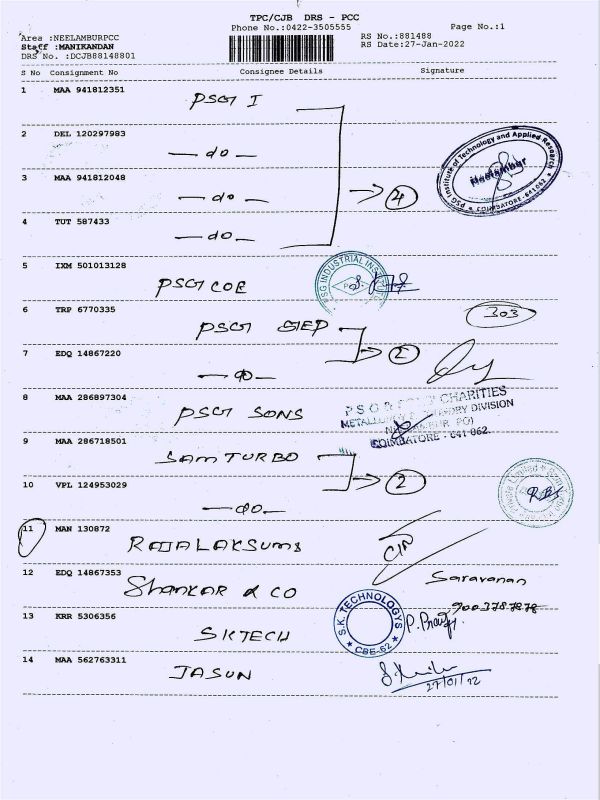 TPC/CJB DRS - PCC
Phone No.:0422-3505555
Page No.:1
Area :NEELAMBURPCC
RS No.:881488
Staff :MANIKANDAN
RS Date:27-Jan-2022
DRS No. :DCJB88148801
S No Consignment No Consignee Details Signature
1 MAA 941812351
PSG I
2 DEL 120297983
— do —
PSG Institute of Technology and Applied Research
Neelambur
COIMBATORE - 641062
3 MAA 941812048
— do —
→ 4
4 TUT 587433
— do —
5 IXM 501013128
PSG COE
PSG INDUSTRIAL INSTITUTE
6 TRP 6770335
PSG STEP
303
7 EDQ 14867220
— do —
→ 2
8 MAA 286897304
PSG SONS
PSG & SONS' CHARITIES
METALLURGY & FOUNDRY DIVISION
NEELAMBUR PO)
COIMBATORE - 641 062.
9 MAA 286718501
SAM TURBO
10 VPL 124953029
— do —
→ 2
11 MAN 130872
RAJALAKSUMI
12 EDQ 14867353
Shankar & CO
Saravanan
9003787878
13 KRR 5306356
SKTECH
S.K. TECHNOLOGYS
CBE-62
14 MAA 562763311
JASUN
27/01/22